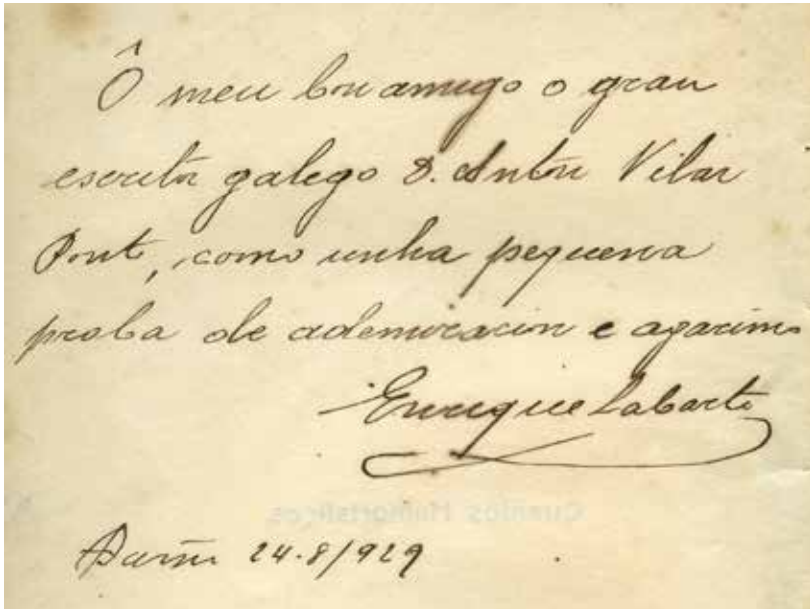 Ô meu bon amigo o gran
escritor galego D. Antón Vilar
Pont, como unha pequena
proba de ademiración e agarimo
Enrique Labarta
Cuentos Humorísticos
24-8/929